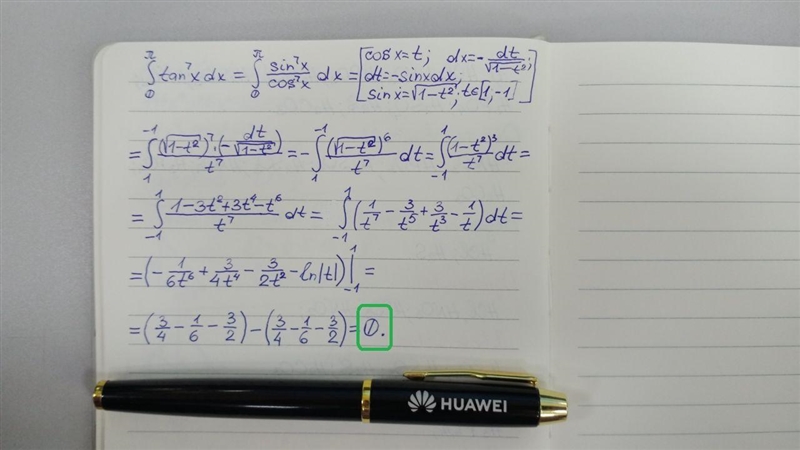 ∫₀^π tan⁷x dx = ∫₀^π sin⁷x/cos⁷x dx = [cos x = t; dx = -dt/√(1-t²); dt = -sin x dx; sin x = √(1-t²); t∈[1,-1]]
= ∫₁^-1 (√(1-t²))⁷·(-dt/√(1-t²))/t⁷ = -∫₁^-1 (√(1-t²))⁶/t⁷ dt = ∫₋₁^1 (1-t²)³/t⁷ dt =
= ∫₋₁^1 (1-3t²+3t⁴-t⁶)/t⁷ dt = ∫₋₁^1 (1/t⁷ - 3/t⁵ + 3/t³ - 1/t) dt =
= (-1/6t⁶ + 3/4t⁴ - 3/2t² - ln|t|)|₋₁^1 =
= (3/4 - 1/6 - 3/2) - (3/4 - 1/6 - 3/2) = 0.
HUAWEI